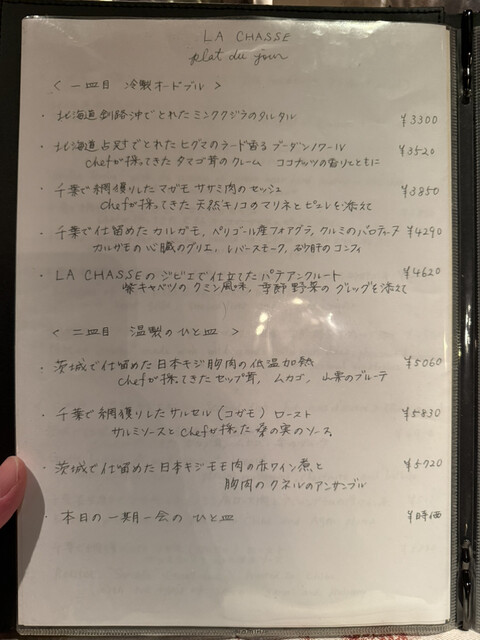 LA CHASSE
plat du jour
< 一皿目 冷製オードブル >
・ 北海道釧路沖でとれたミンククジラのタルタル ¥3300
・ 北海道占冠でとれたヒグマのラード香るブーダンノワール ¥3520
chefが採ってきたタマゴ茸のクレーム ココナッツの香りとともに
・ 千葉で網獲りしたマガモ ササミ肉のセッシュ ¥3850
chefが採ってきた天然キノコのマリネとピュレを添えて
・ 千葉で仕留めたカルガモ、ペリゴール産フォアグラ、クルミのバロティーヌ ¥4290
カルガモの心臓のグリエ、レバースモーク、砂肝のコンフィ
・ LA CHASSEのジビエで仕立てたパテアンクルート ¥4620
紫キャベツのクミン風味、季節野菜のグレッグを添えて
< 二皿目 温製のひと皿 >
・ 茨城で仕留めた日本キジ胸肉の低温加熱 ¥5060
chefが採ってきたセップ茸、ムカゴ、山栗のブルーテ
・ 千葉で網獲りしたサルセル(コガモ)ロースト ¥5830
サルミソースとchefが採った桑の実のソース
・ 茨城で仕留めた日本キジモモ肉の赤ワイン煮と ¥5720
胸肉のクネルのアンサンブル
・ 本日の一期一会のひと皿 ¥時価